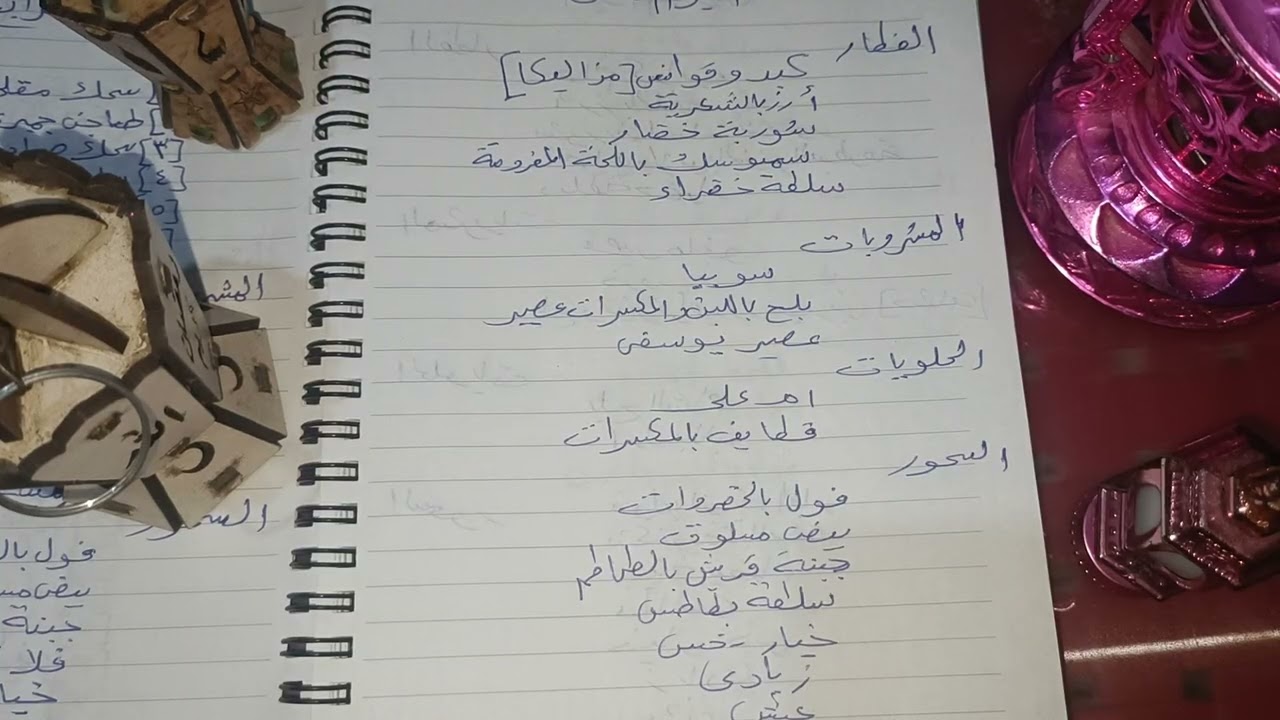 الفطار
كبد وقوانص [مزاليكا]
أرز بالشعرية
شوربة خضار
سمبوسك باللحمة المفرومة
سلطة خضراء
المشروبات
سوبيا
بلح باللبن والمكسرات عصير
عصير يوسفى
الحلويات
ام على
قطايف بالمكسرات
السحور
فول بالخضروات
بيض مسلوق
جبنة قريش بالطماطم
سلطة بطاطس
خيار - خس
زبادى
عيش
سمك مقلى
[٣] سمك
[٤]
[٥]
المش
السحور
فول بال
بيض مس
جبنة
فلا
خيا